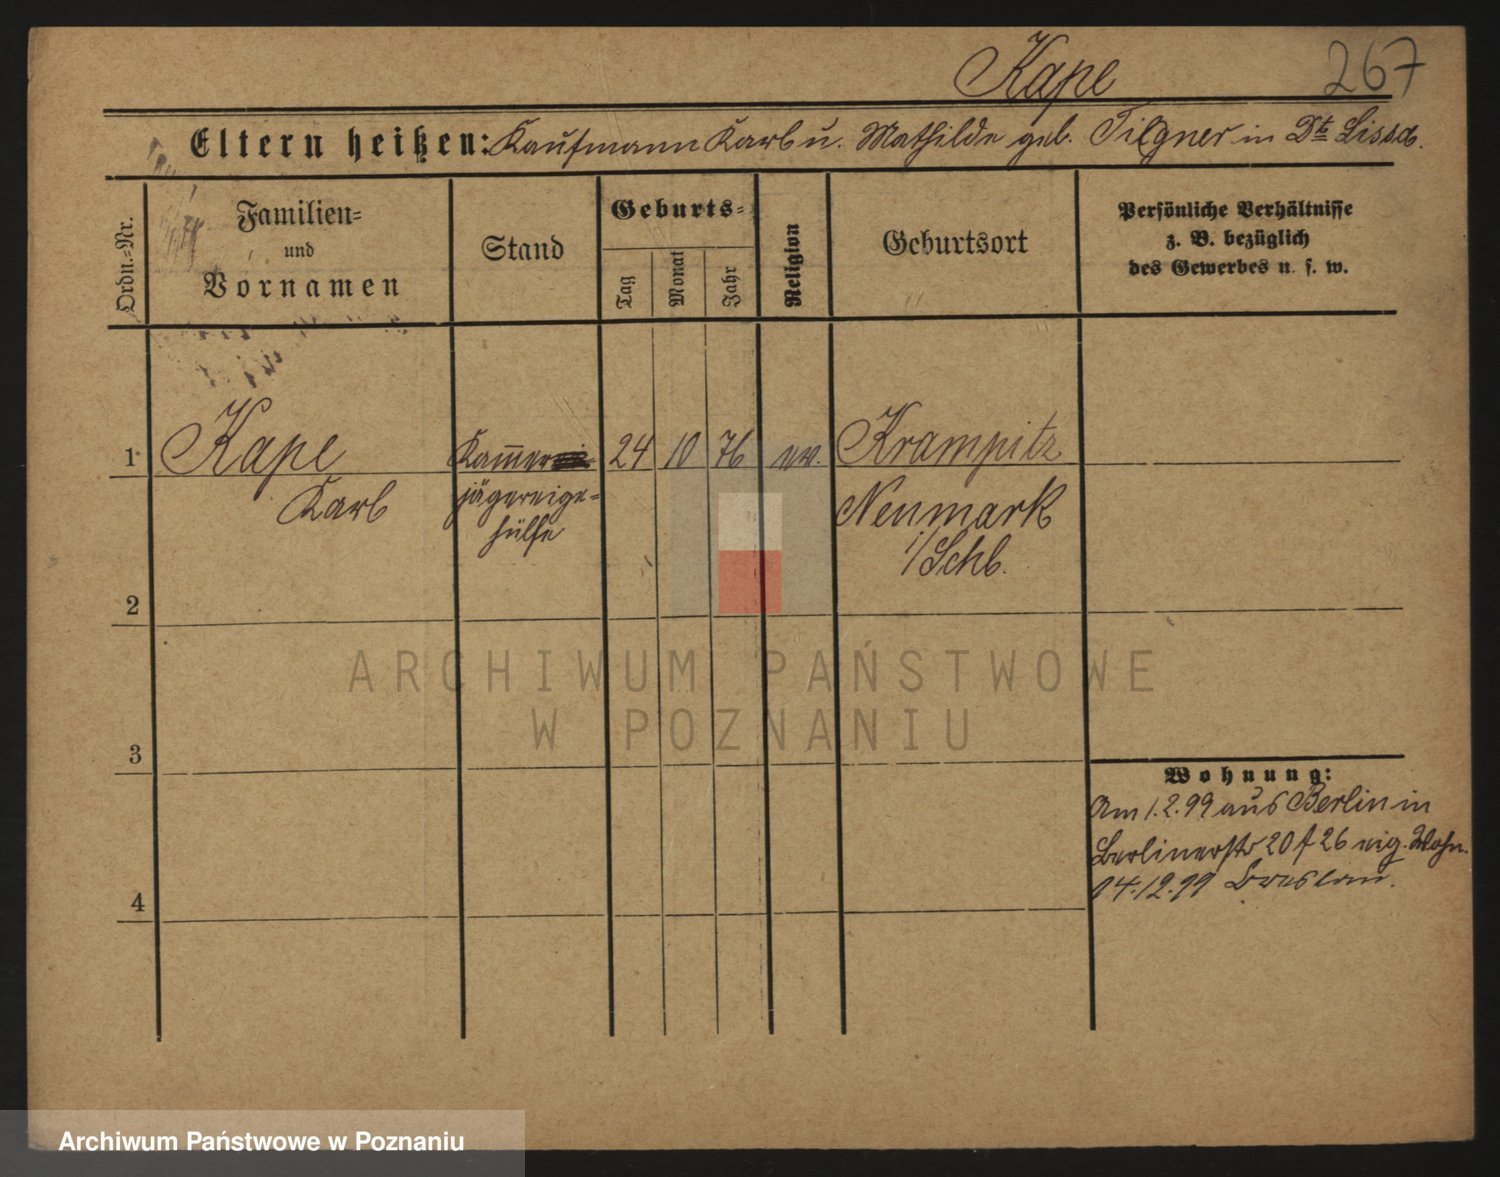 Kape
267
Eltern heißen: Kaufmann Karl u. Mathilde geb. Tilgner in Dt. Lissa.
Ordn.-Nr.
Familien-
und
Vornamen
Stand
Geburts-
Tag
Monat
Jahr
Religion
Geburtsort
Persönliche Verhältnisse
z. B. bezüglich
des Gewerbes u. s. w.
1
Kape
Karl
Kammer
jägereige-
hülfe
24
10
76
ev.
Krampitz
Neumark
i/Schl.
2
3
4
ARCHIWUM PAŃSTWOWE
W POZNANIU
Wohnung:
Am 1.2.99 aus Berlin in
Berlinerstr 20 26 eig. Wohn.
14.12.99 Breslau.
Archiwum Państwowe w Poznaniu